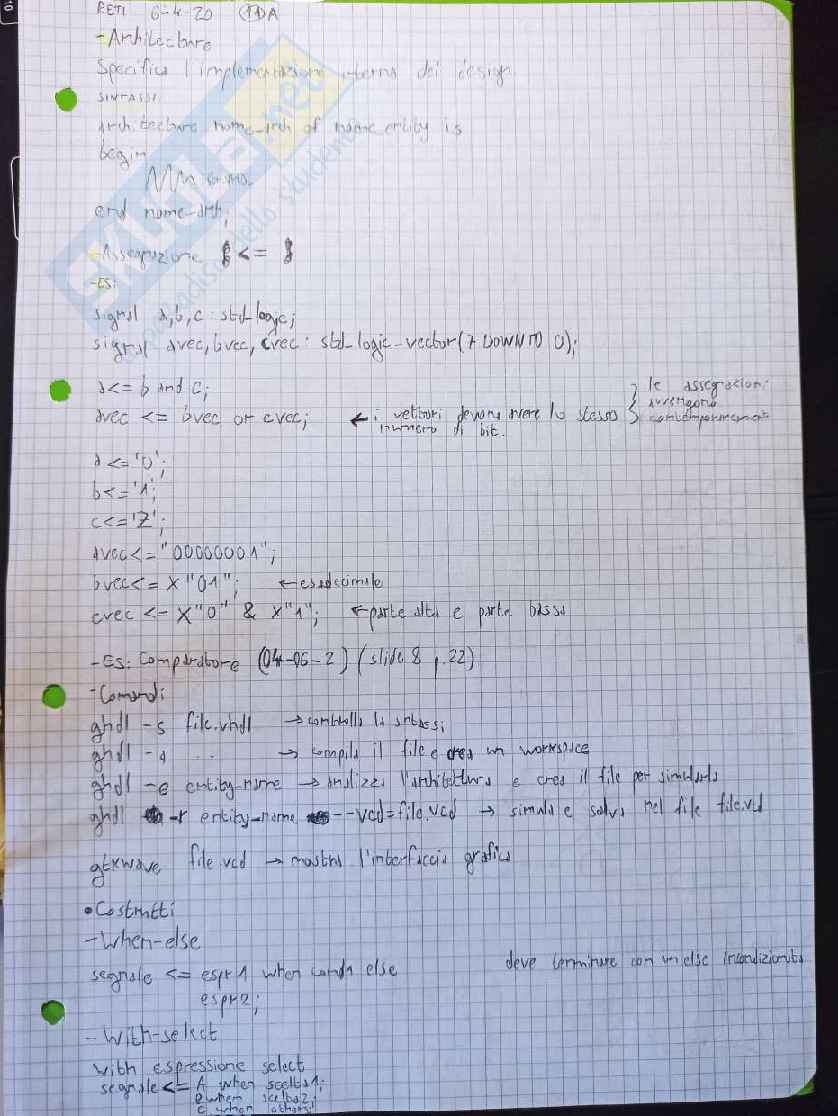 RETI 6-4-20
- Architecture
Specifica l'implementazione interna del design
SINTASSI:
architecture nome_arch of nome_entity is
begin
end nome_arch;
- Assegnazione <=
- ES:
signal a,b,c: std_logic;
signal avec, bvec, cvec: std_logic_vector(7 DOWNTO 0);
a<= b and c;
avec <= bvec or cvec; ← i vettori devono avere lo stesso numero di bit.
le assegnazioni avvengono contemporaneamente
a<='0';
b<='1';
c<='Z';
avec<="00000001";
bvec<= X"01"; ← esadecimale
cvec <- X"0" & X"1"; ← parte alta e parte bassa
- ES: Comparatore (04-06-2) (slide 8 p.22)
- Comandi
ghdl -s file.vhdl → controlla la sintassi
ghdl -a . → compila il file e crea un workspace
ghdl -e entity_name → analizza l'architettura e crea il file per simularla
ghdl -r entity_name --vcd=file.vcd → simula e salva nel file file.vcd
gtkwave file.vcd → mostra l'interfaccia grafica
• Costrutti
- When-else
segnale <= espr1 when cond1 else deve terminare con un else incondizionato
espr2;
- With-select
with espressione select
segnale <= A when scelta1,
B when scelta2,
C when others;
SKUOLA.net
paradiso dello studente